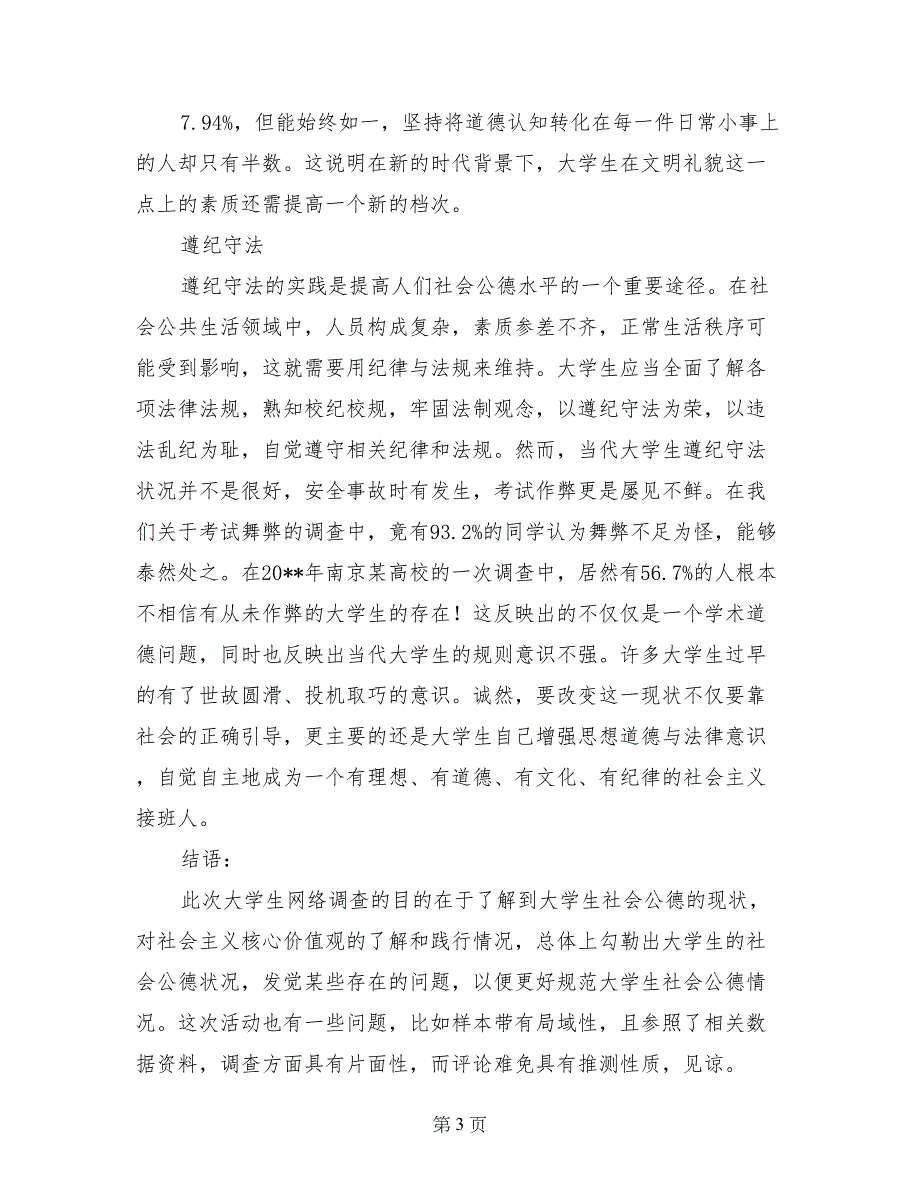 7.94%，但能始终如一，坚持将道德认知转化在每一件日常小事上
的人却只有半数。这说明在新的时代背景下，大学生在文明礼貌这一
点上的素质还需提高一个新的档次。
遵纪守法
遵纪守法的实践是提高人们社会公德水平的一个重要途径。在社
会公共生活领域中，人员构成复杂，素质参差不齐，正常生活秩序可
能受到影响，这就需要用纪律与法规来维持。大学生应当全面了解各
项法律法规，熟知校纪校规，牢固法制观念，以遵纪守法为荣，以违
法乱纪为耻，自觉遵守相关纪律和法规。然而，当代大学生遵纪守法
状况并不是很好，安全事故时有发生，考试作弊更是屡见不鲜。在我
们关于考试舞弊的调查中，竟有93.2%的同学认为舞弊不足为怪，能够
泰然处之。在20**年南京某高校的一次调查中，居然有56.7%的人根本
不相信有从未作弊的大学生的存在！这反映出的不仅仅是一个学术道
德问题，同时也反映出当代大学生的规则意识不强。许多大学生过早
的有了世故圆滑、投机取巧的意识。诚然，要改变这一现状不仅要靠
社会的正确引导，更主要的还是大学生自己增强思想道德与法律意识
，自觉自主地成为一个有理想、有道德、有文化、有纪律的社会主义
接班人。
结语：
此次大学生网络调查的目的在于了解到大学生社会公德的现状，
对社会主义核心价值观的了解和践行情况，总体上勾勒出大学生的社
会公德状况，发觉某些存在的问题，以便更好规范大学生社会公德情
况。这次活动也有一些问题，比如样本带有局域性，且参照了相关数
据资料，调查方面具有片面性，而评论难免具有推测性质，见谅。
第 3 页